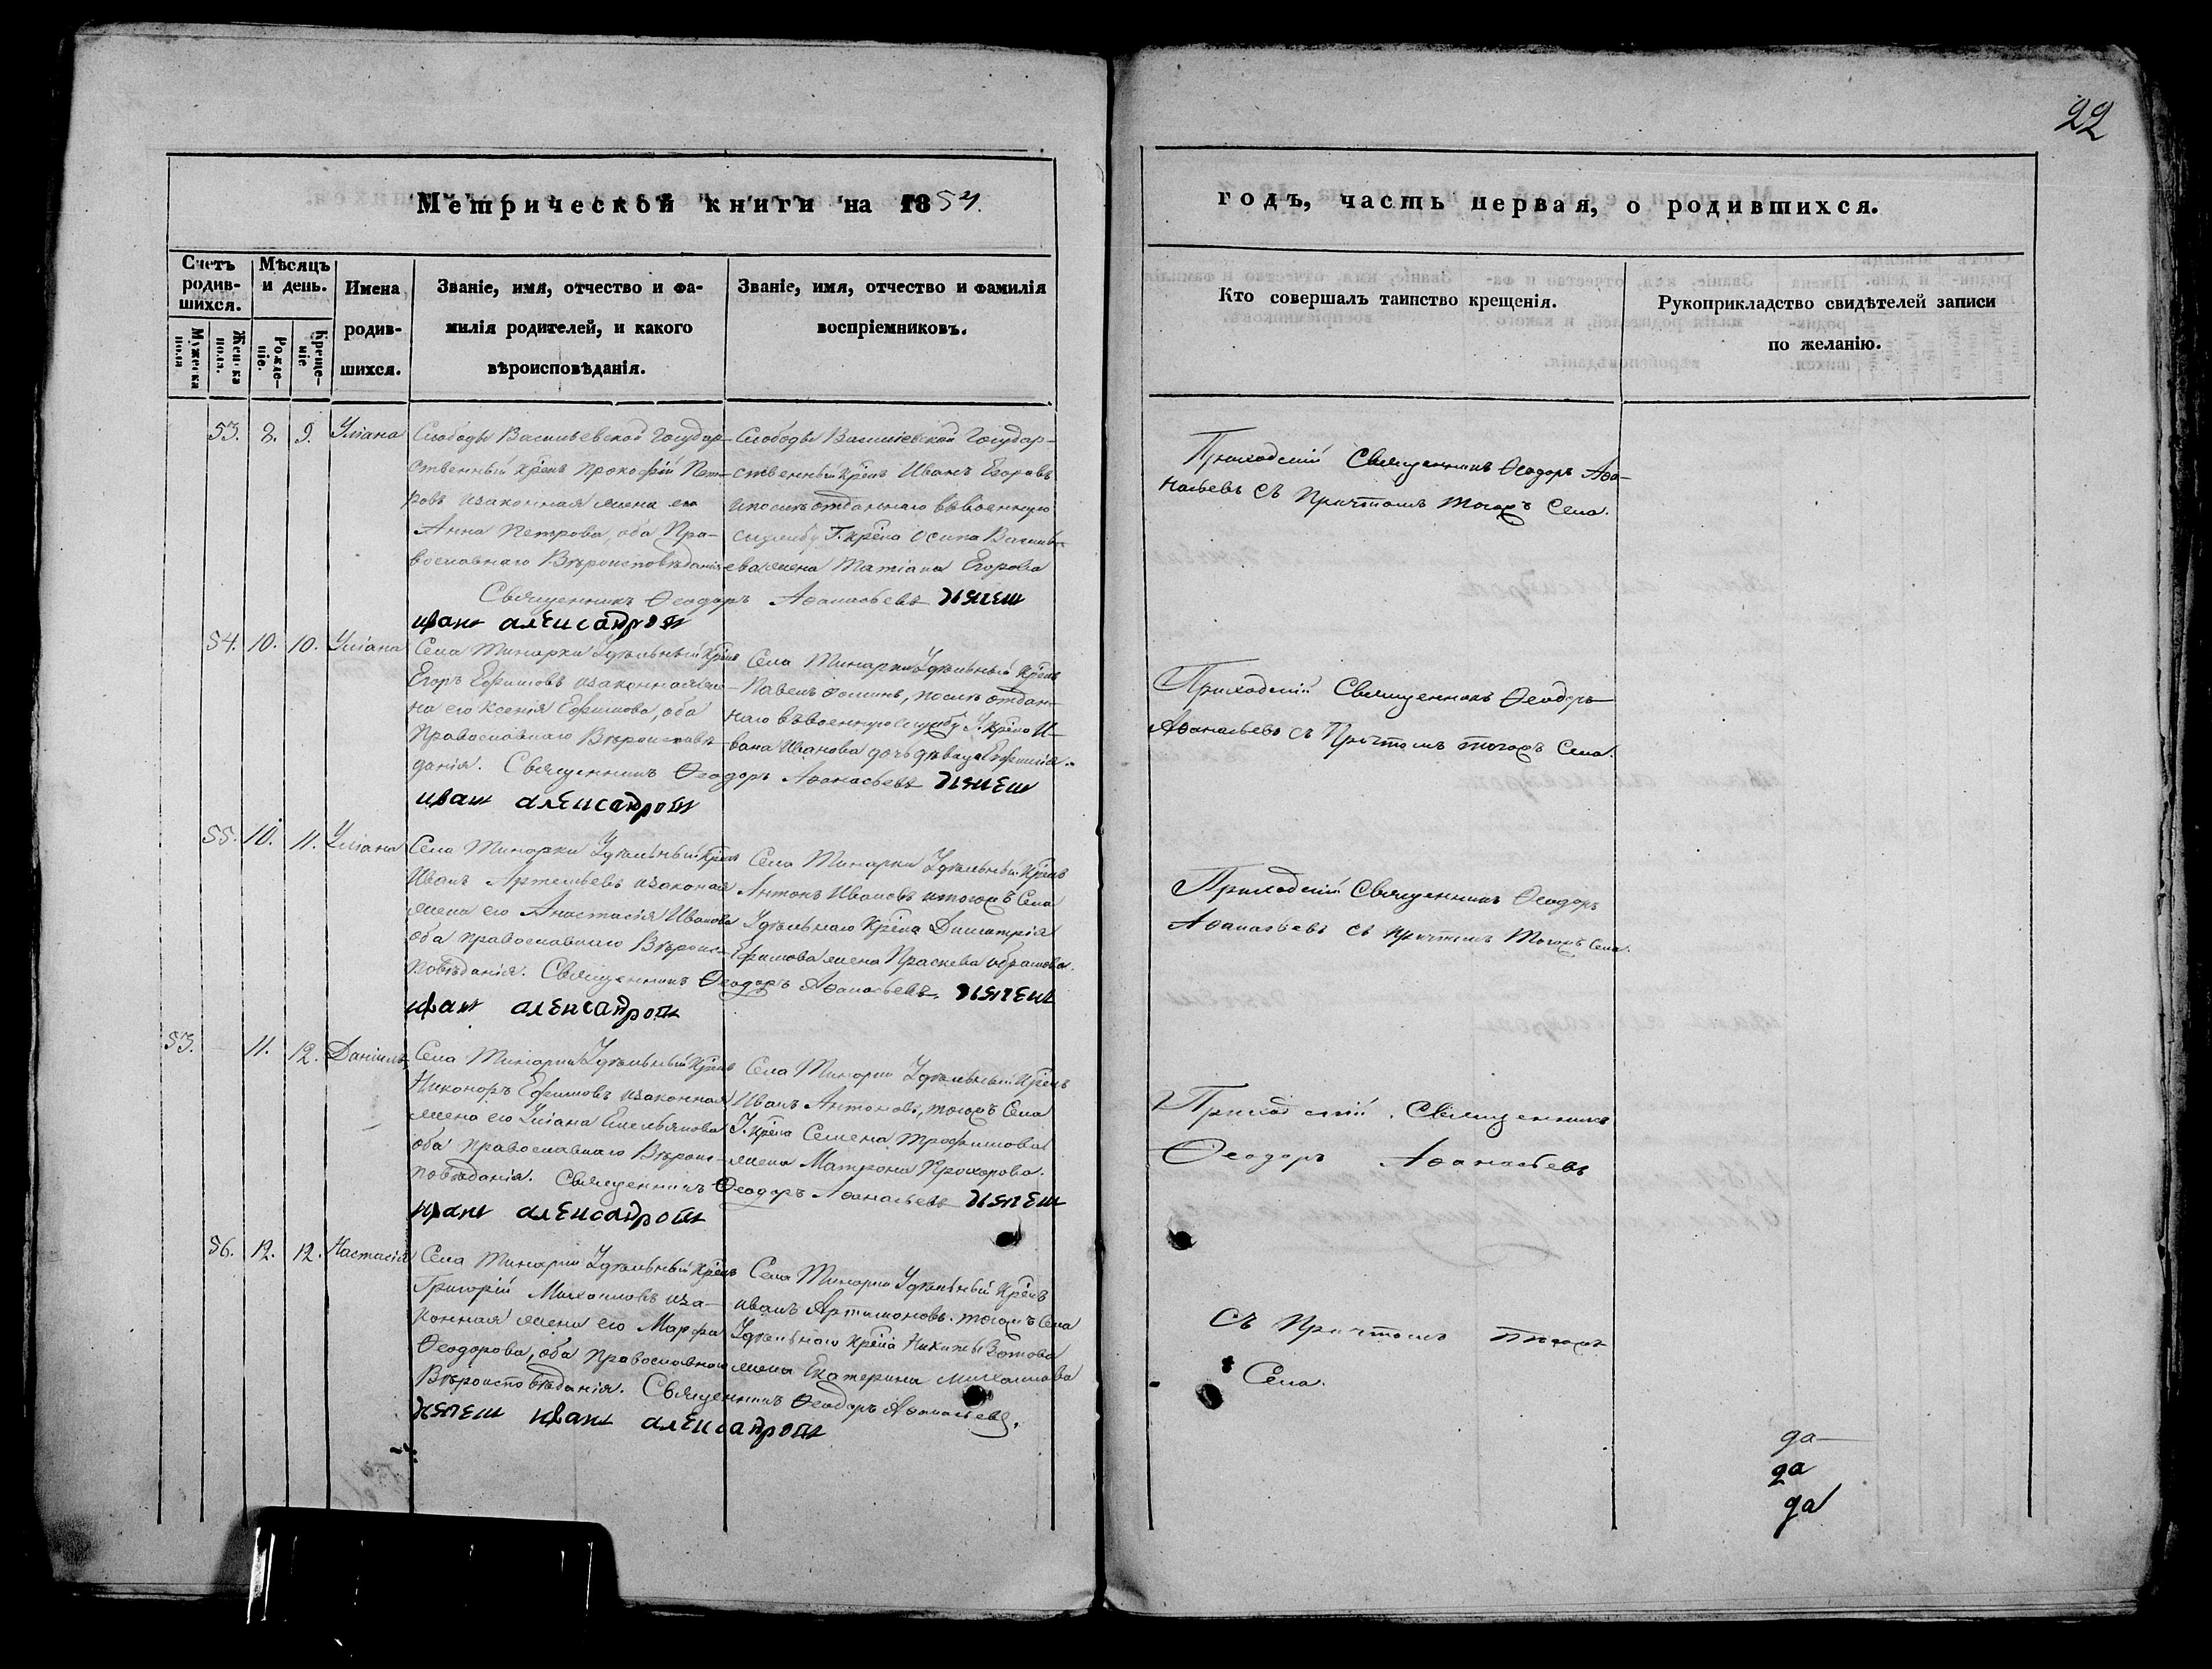 22
Метрической книги на 1854.
годъ, часть первая, о родившихся.
Счетъ родив-шихся.
Мужеска пола
Женска пола.
Мѣсяцъ и день.
Рожде-ніе.
Креще-ніе
Имена родив-шихся.
Званіе, имя, отчество и фа-
милія родителей, и какого
вѣроисповѣданія.
Званіе, имя, отчество и фамилія
воспріемниковъ.
Кто совершалъ таинство крещенія.
Рукоприкладство свидѣтелей записи
по желанію.
53. 8. 9. Уліана
Слободы Васильевской Государ-
ственный крѣнъ Прокофій Пет-
ровъ изаконная жена его
Анна Петрова, оба Пра-
вославнаго Вѣроисповѣданія
Слободы Василіевской Государ-
ственный крѣнъ Иванъ Егоровъ
ипослѣ отданнаго ввоенную
службу Г. крѣна Осипа Василь-
ева жена Татіана Егорова
Священникъ Ѳеодоръ Аѳанасьевъ
иванъ александровъ
Приходскій Священникъ Ѳеодоръ Аѳа-
насьевъ съ Причтомъ тогожъ Села.
54. 10. 10. Уліана
Села Тинарки Удѣльный крѣнъ
Егоръ Ефимовъ изаконная же-
на его Ксенія Ефимова, оба
Православнаго Вѣроисповѣ-
данія. Священникъ Ѳеодоръ Аѳанасьевъ
иванъ александровъ
Села Тинарки Удѣльный крѣнъ
Павелъ Ѳоминъ, послѣ отдан-
наго ввоенную службу У. крѣна И-
вана Иванова дочь дѣвица Евфимія.
Приходскій Священникъ Ѳеодоръ
Аѳанасьевъ съ Причтомъ тогожъ Села.
55. 10. 11. Уліана
Села Тинарки Удѣльный крѣнъ
Иванъ Артемьевъ изаконая
жена его Анастасія Иванова
оба православнаго Вѣроис-
повѣданія. Священникъ Ѳеодоръ Аѳанасьевъ.
иванъ александровъ
Села Тинарки Удѣльный крѣнъ
Антонъ Ивановъ итогожъ Села
Удѣльнаго крѣна Димитрія
Ефимова жена Прасковья
Приходскій Священникъ Ѳеодоръ
Аѳанасьевъ съ причтомъ тогожъ Села.
53. 11. 12. Даніилъ
Села Тинарки Удѣльный крѣнъ
Никоноръ Ефимовъ изаконная
жена его Уліана Емельянова
оба православнаго Вѣроис-
повѣданія. Священникъ Ѳеодоръ Аѳанасьевъ
иванъ александровъ
Села Тинарки Удѣльный крѣнъ
Иванъ Антоновъ, тогожъ Села
У. крѣна Семена Трофимова
жена Матрона Прохорова.
Приходскій Священникъ
Ѳеодоръ Аѳанасьевъ
56. 12. 12. Настасія
Села Тинарки Удѣльный крѣнъ
Григорій Михайловъ иза-
конная жена его Марфа
Ѳеодорова, оба православнаго
Вѣроисповѣданія. Священникъ Ѳеодоръ Аѳанасьевъ.
иванъ александровъ
Села Тинарки Удѣльный крѣнъ
иванъ Артамоновъ. тогожъ Села
Удѣльнаго крѣна Никиты Зотова
жена Екатерина Михайлова
съ Причтомъ тогожъ
Села.
да
да
да